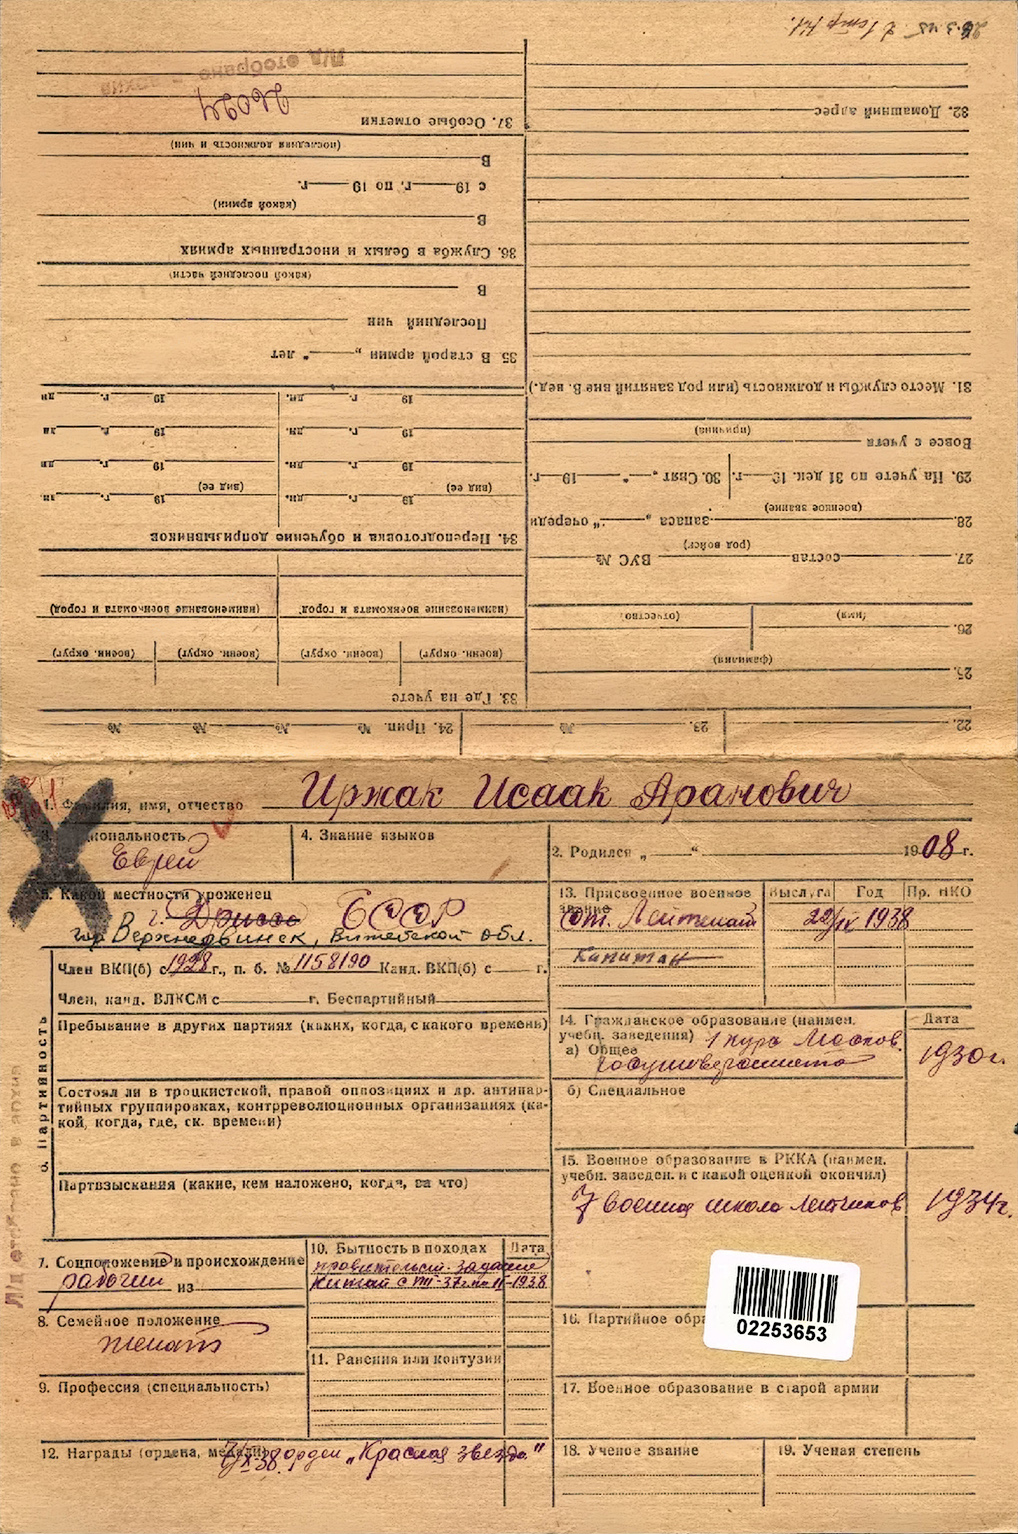 1. Фамилия, имя, отчество Иржак Исаак Аранович
3. Национальность
Еврей
4. Знание языков
2. Родился „ “ 1908 г.
5. Какой местности уроженец
г. Дрисса БССР
гор Верхнедвинск, Витебской обл.
6. Партийность
Член ВКП(б) с 1928 г., п. б. № 1158190 Канд. ВКП(б) с г.
Член, канд. ВЛКСМ с г. Беспартийный
Пребывание в других партиях (каких, когда, с какого времени)
Состоял ли в троцкистской, правой оппозициях и др. антипар-
тийных группировках, контрреволюционных организациях (ка-
кой, когда, где, ск. времени)
Партвзыскания (какие, кем наложено, когда, за что)
7. Соцположение и происхождение
рабочий из
8. Семейное положение
женат
9. Профессия (специальность)
10. Бытность в походах Дата
правительст. задание
Китай с -37г. по -1938
11. Ранения или контузии
12. Награды (ордена, медали) орден „Красная звезда“
38.
13. Присвоенное военное звание Выслуга Год Пр. НКО
Ст. Лейтенант 22/IX 1938
Капитан
14. Гражданское образование (наимен. Дата
учебн. заведения)
а) Общее 1 курс Москов.
госуниверситета 1930г.
б) Специальное
15. Военное образование в РККА (наимен.
учебн. заведен. и с какой оценкой окончил)
7 военная школа летчиков 1934г.
16. Партийное обра
02253653
17. Военное образование в старой армии
18. Ученое звание
19. Ученая степень
Л/Д отобрано в архив
22. 23. № 24. Прип. № № № №
25.
(фамилия)
26.
(имя) (отчество)
27. состав ВУС №
(род войск)
28. запаса „ “ очереди
(военное звание)
29. На учете по 31 дек. 19 г. 30. Снят „ “ 19 г.
Вовсе с учета
(причина)
31. Место службы и должность (или род занятий вне В. вед.)
32. Домашний адрес
33. Где на учете
(военн. округ) (военн. округ) (военн. округ) (военн. округ)
(наименование военкомата и город) (наименование военкомата и город)
34. Переподготовка и обучение допризывников
19 г. дн. 19 г. дн
(вид ее) (вид ее)
19 г. дн. 19 г. дн
19 г. дн. 19 г. дн
19 г. дн. 19 г. дн
35 В старой армии „ “ лет
Последний чин
В
(какой последней части)
36. Служба в белых и иностранных армиях
В
(какой армии)
с 19 г. по 19 г.
В
(последняя должность и чин)
37. Особые отметки
26024
Л/Д отобрано архив